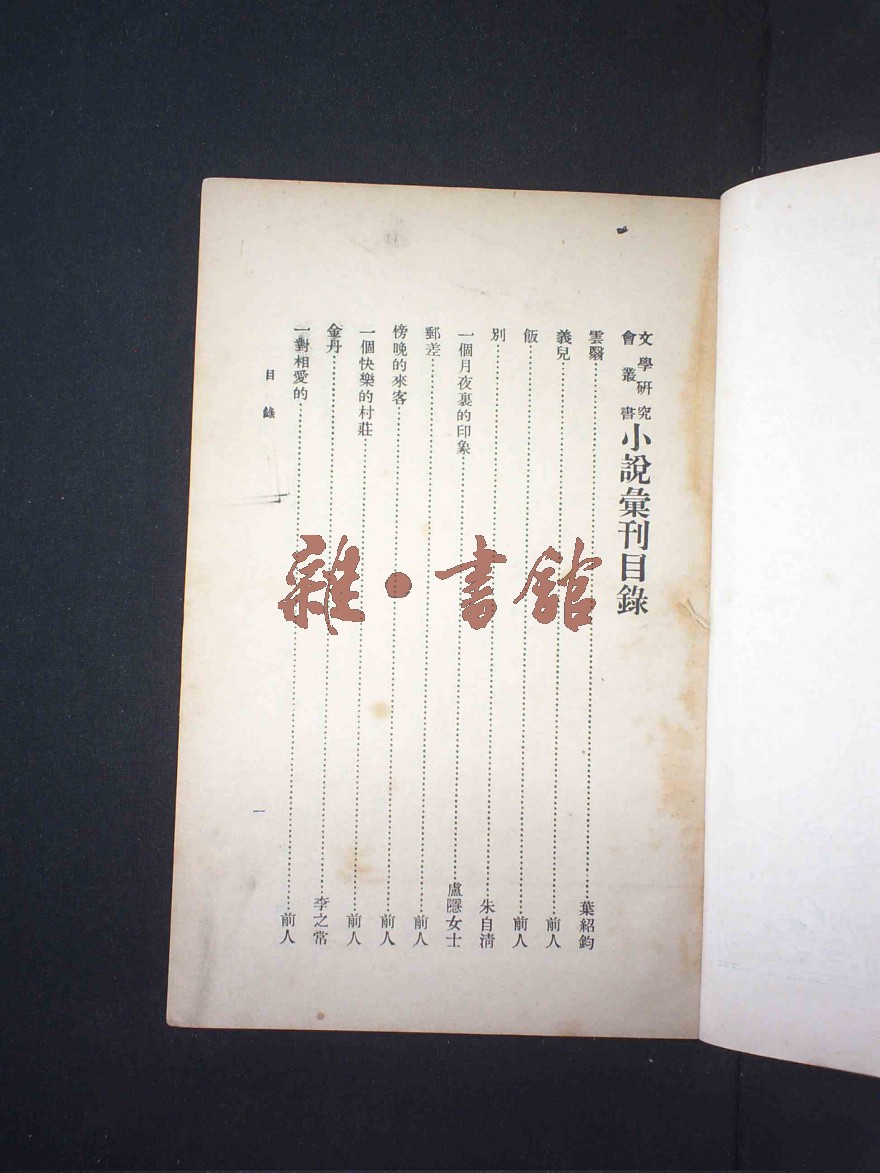 文學研究
會叢書
小說彙刊目錄
雲翳……葉紹鈞
義兒……前人
飯……前人
別……朱自清
一個月夜裏的印象……盧隱女士
郵差……前人
傍晚的來客……前人
一個快樂的村莊……前人
金丹……李之常
一對相愛的……前人
目錄
一
雜·書館